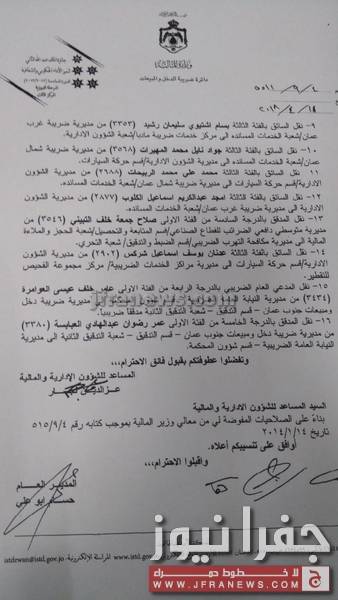 وزارة المالية
دائرة ضريبة الدخل والمبيعات
٩- نقل السائق بالفئة الثالثة بسام اشتيوي سليمان رشيد (٣٣٥٣) من مديرية ضريبة غرب
عمان/شعبة الخدمات المسانده الى مركز خدمات ضريبة مادبا/شعبة الشؤون الادارية.
١٠- نقل السائق بالفئة الثالثة جواد نايل محمد المهيرات (٣٥٦٨) من مديرية ضريبة شمال
عمان/شعبة الخدمات المسانده الى مديرية الشؤون الادارية/قسم حركة السيارات.
١١- نقل السائق بالفئة الثالثة محمد علي محمد الربيحات (٢٦٨٨) من مديرية الشؤون
الادارية/قسم حركة السيارات الى مديرية ضريبة شمال عمان/شعبة الخدمات المسانده.
١٢- نقل السائق بالفئة الثالثة امجد عبدالكريم اسماعيل الكلوب (٢٨٧٧) من مديرية الشؤون
الادارية الى مديرية ضريبة غرب عمان/شعبة الخدمات المسانده.
١٣- نقل المدقق بالدرجة السادسة من الفئة الاولى صلاح جمعة خلف الثبيتي (٣٥٤٦) من
مديرية متوسطي دافعي الضرائب للقطاع الصناعي/قسم المتابعة والتحصيل/شعبة الحجز والملاءة
المالية الى مديرية مكافحة التهرب الضريبي/قسم الضبط والتدقيق/ شعبة التحري.
١٤- نقل السائق بالفئة الثالثة عدنان يوسف اسماعيل شركس (٢٩٠٢) من مديرية الشؤون
الادارية/قسم حركة السيارات الى مديرية مراكز الخدمات الضريبية/ مركز مجموعة الفحيص
للتقطير.
١٥- نقل المدعي العام الضريبي بالدرجة الرابعة من الفئة الاولى عامر خلف عيسى العوامرة
(٣٤٣٤) من مديرية النيابة العامة الضريبية الى مديرية ضريبة دخل
ومبيعات جنوب عمان – قسم التدقيق الثانية مدققا ضريبيا.
١٦- نقل المدقق بالدرجة الخامسة من الفئة الاولى عمر رضوان عبدالهادي العبابسة (٣٣٨٠)
من مديرية ضريبة دخل ومبيعات جنوب عمان – قسم التدقيق الثانية الى مديرية
النيابة العامة الضريبية – قسم شؤون المحكمة.
وتفضلوا عطوفتكم بقبول فائق الاحترام،،،
المساعد للشؤون الادارية والمالية
السيد المساعد للشؤون الادارية والمالية
بناءً على الصلاحيات المفوضة لي من معالي وزير المالية بموجب كتابه رقم ٥١٥/٩/٤
تاريخ ٢٠١٤/١/١٤
أوافق على تنسيبكم أعلاه.
واقبلوا الاحترام،،،
المدير العام
حسام ابو علي
Jfranews.com
جفرا نيوز
لا خطوط حمراء
WWW.JFRANEWS.COM